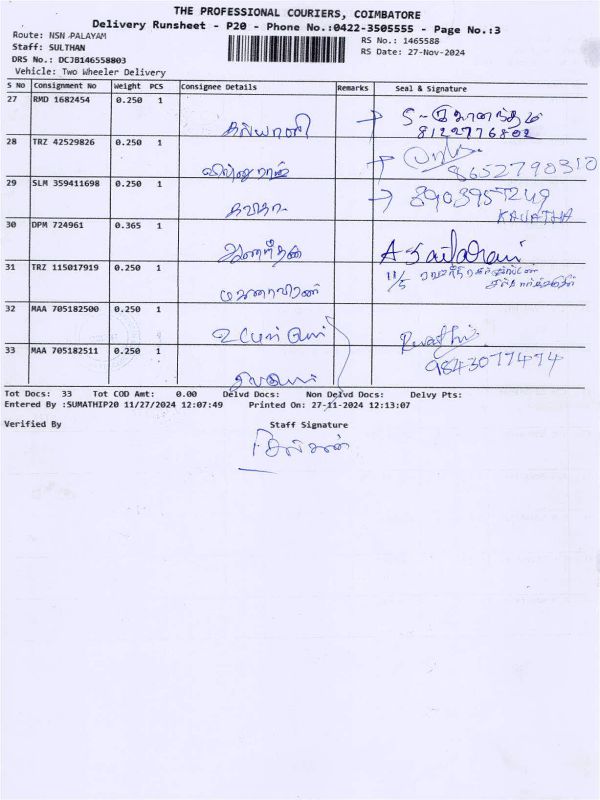 THE PROFESSIONAL COURIERS, COIMBATORE
Delivery Runsheet - P20 - Phone No.:0422-3505555 - Page No.:3
Route: NSN PALAYAM
RS No.: 1465588
Staff: SULTHAN
RS Date: 27-Nov-2024
DRS No.: DCJB146558803
Vehicle: Two Wheeler Delivery
S No Consignment No Weight PCS Consignee Details Remarks Seal & Signature
27 RMD 1682454 0.250 1 கல்யாணி
8122776802
28 TRZ 42529826 0.250 1
8652790310
29 SLM 359411698 0.250 1 கவிதா
8903957249
KAVATHA
30 DPM 724961 0.365 1
31 TRZ 115017919 0.250 1
11/5
32 MAA 705182500 0.250 1
Revathi
33 MAA 705182511 0.250 1
9843077474
Tot Docs: 33 Tot COD Amt: 0.00 Delvd Docs: Non Delvd Docs: Delvy Pts:
Entered By :SUMATHIP20 11/27/2024 12:07:49 Printed On: 27-11-2024 12:13:07
Verified By Staff Signature